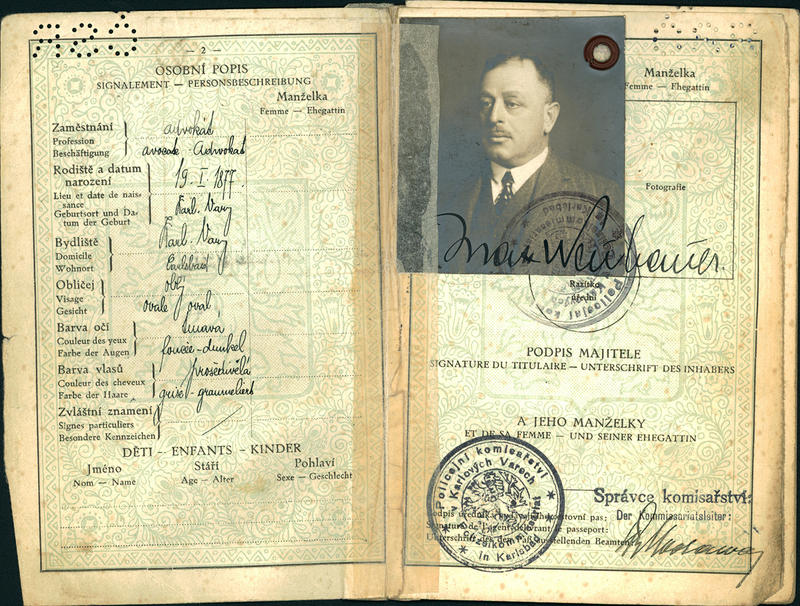 — 2 —
OSOBNÍ POPIS
SIGNALEMENT — PERSONSBESCHREIBUNG
Manželka
Femme — Ehegattin
Zaměstnání
Profession
Beschäftigung
advokát
avocat - Advokat
Rodiště a datum
narození
Lieu et date de nais-
sance
Geburtsort und Da-
tum der Geburt
19. I. 1877.
Karl. Vary
Bydliště
Domicile
Wohnort
Karl. Vary
Carlsbad
Obličej
Visage
Gesicht
obl.
ovale oval
Barva očí
Couleur des yeux
Farbe der Augen
tmavá
foncée - dunkel
Barva vlasů
Couleur des cheveux
Farbe der Haare
prošedivělá
grisé - graumeliert
Zvláštní znamení
Signes particuliers
Besondere Kennzeichen
DĚTI - ENFANTS - KINDER
Jméno
Nom — Name
Stáří
Age — Alter
Pohlaví
Sexe — Geschlecht
Manželka
Femme — Ehegattin
Fotografie
Max Neubauer.
Razítko
úřední
Policejní
Kommissariat
Karlsbad
PODPIS MAJITELE
SIGNATURE DU TITULAIRE — UNTERSCHRIFT DES INHABERS
A JEHO MANŽELKY
ET DE SA FEMME — UND SEINER EHEGATTIN
Policejní komisařství
v Karlových Varech
Polizeikommissariat
in Karlsbad
Správce komisařství:
Der Kommissariatsleiter: